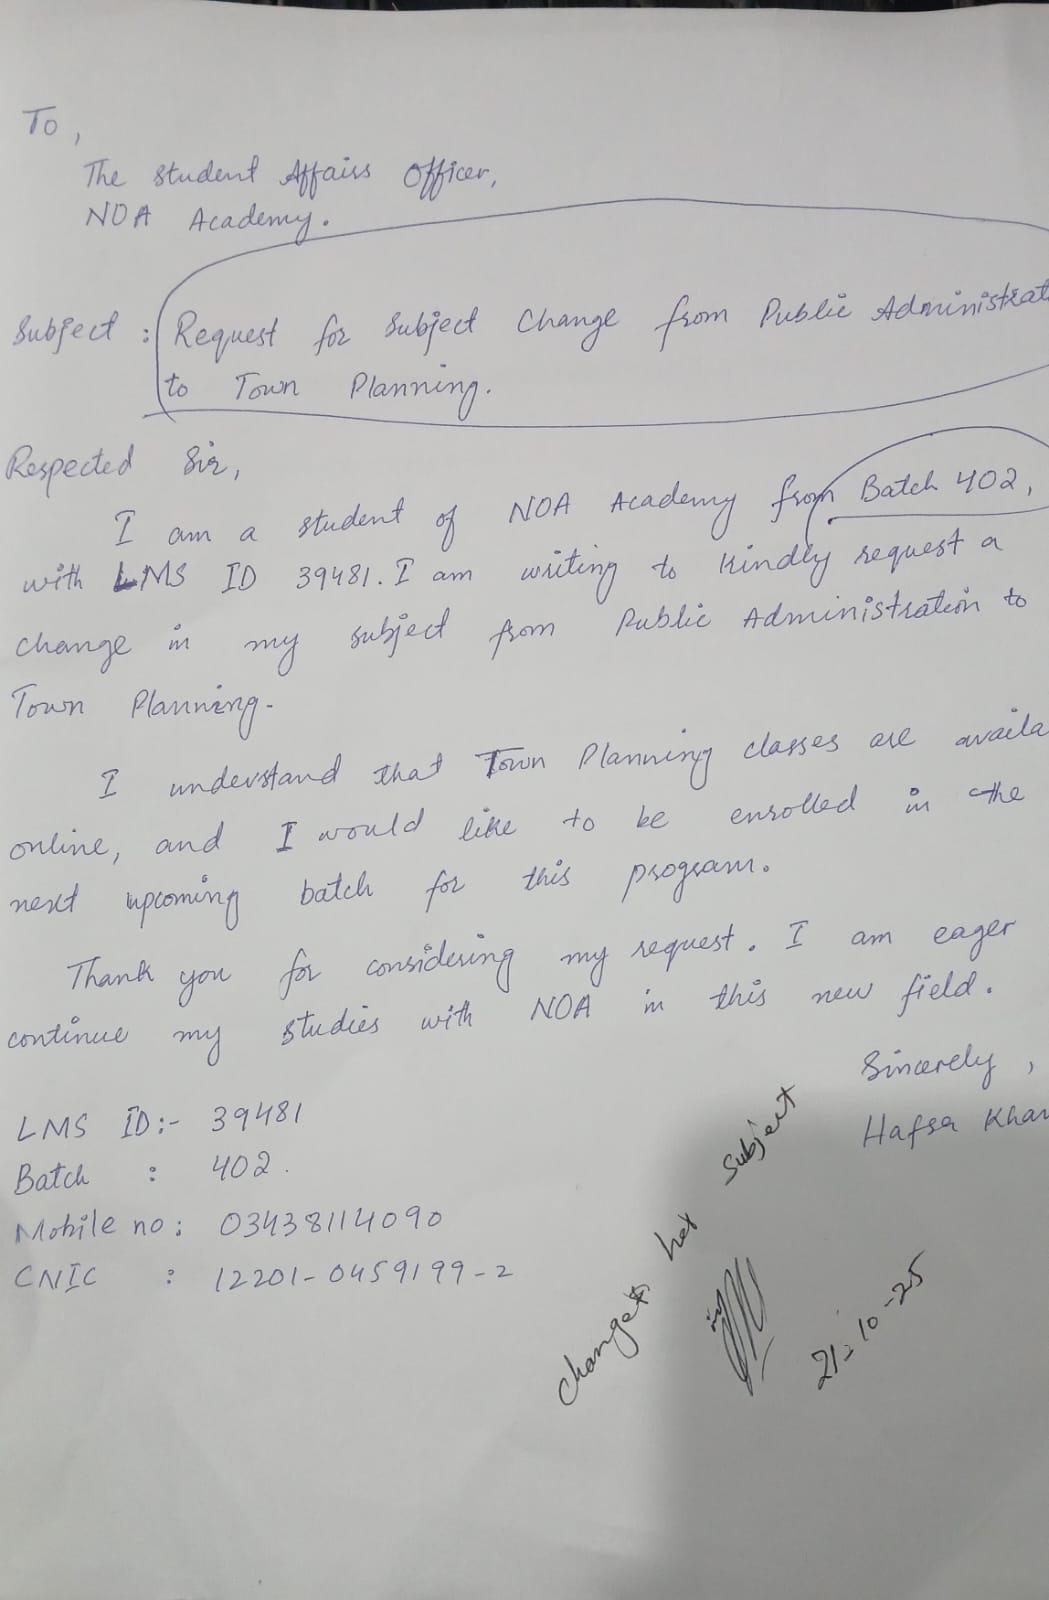 To,
The Student Affairs Officer,
NOA Academy.
Subject : Request for Subject Change from Public Administrat
to Town Planning.
Respected Sir,
I am a student of NOA Academy from Batch 402,
with LMS ID 39481. I am writing to kindly request a
change in my subject from Public Administration to
Town Planning.
I understand that Town Planning classes are availa
online, and I would like to be enrolled in the
next upcoming batch for this program.
Thank you for considering my request. I am eager
continue my studies with NOA in this new field.
Sincerely,
Hafsa Khan
LMS ID:- 39481
Batch : 402.
Mobile no: 03438114090
CNIC : 12201-0459199-2
her subject
21-10-25